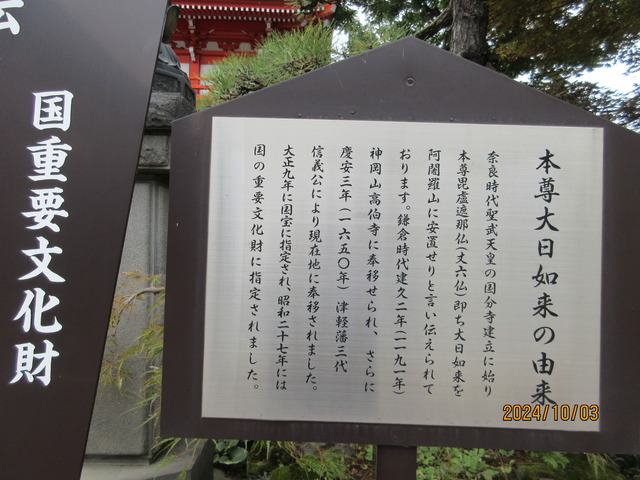 本尊大日如来の由来
奈良時代聖武天皇の国分寺建立に始り
本尊毘盧遮那仏(丈六仏)即ち大日如来を
阿闍羅山に安置せりと言い伝えられて
おります。鎌倉時代建久二年(一一九一年)
神岡山高伯寺に奉移せられ、さらに
慶安三年(一六五〇年)津軽藩三代
信義公により現在地に奉移されました。
大正九年に国宝に指定され、昭和二十七年には
国の重要文化財に指定されました。
国重要文化財
2024/10/03